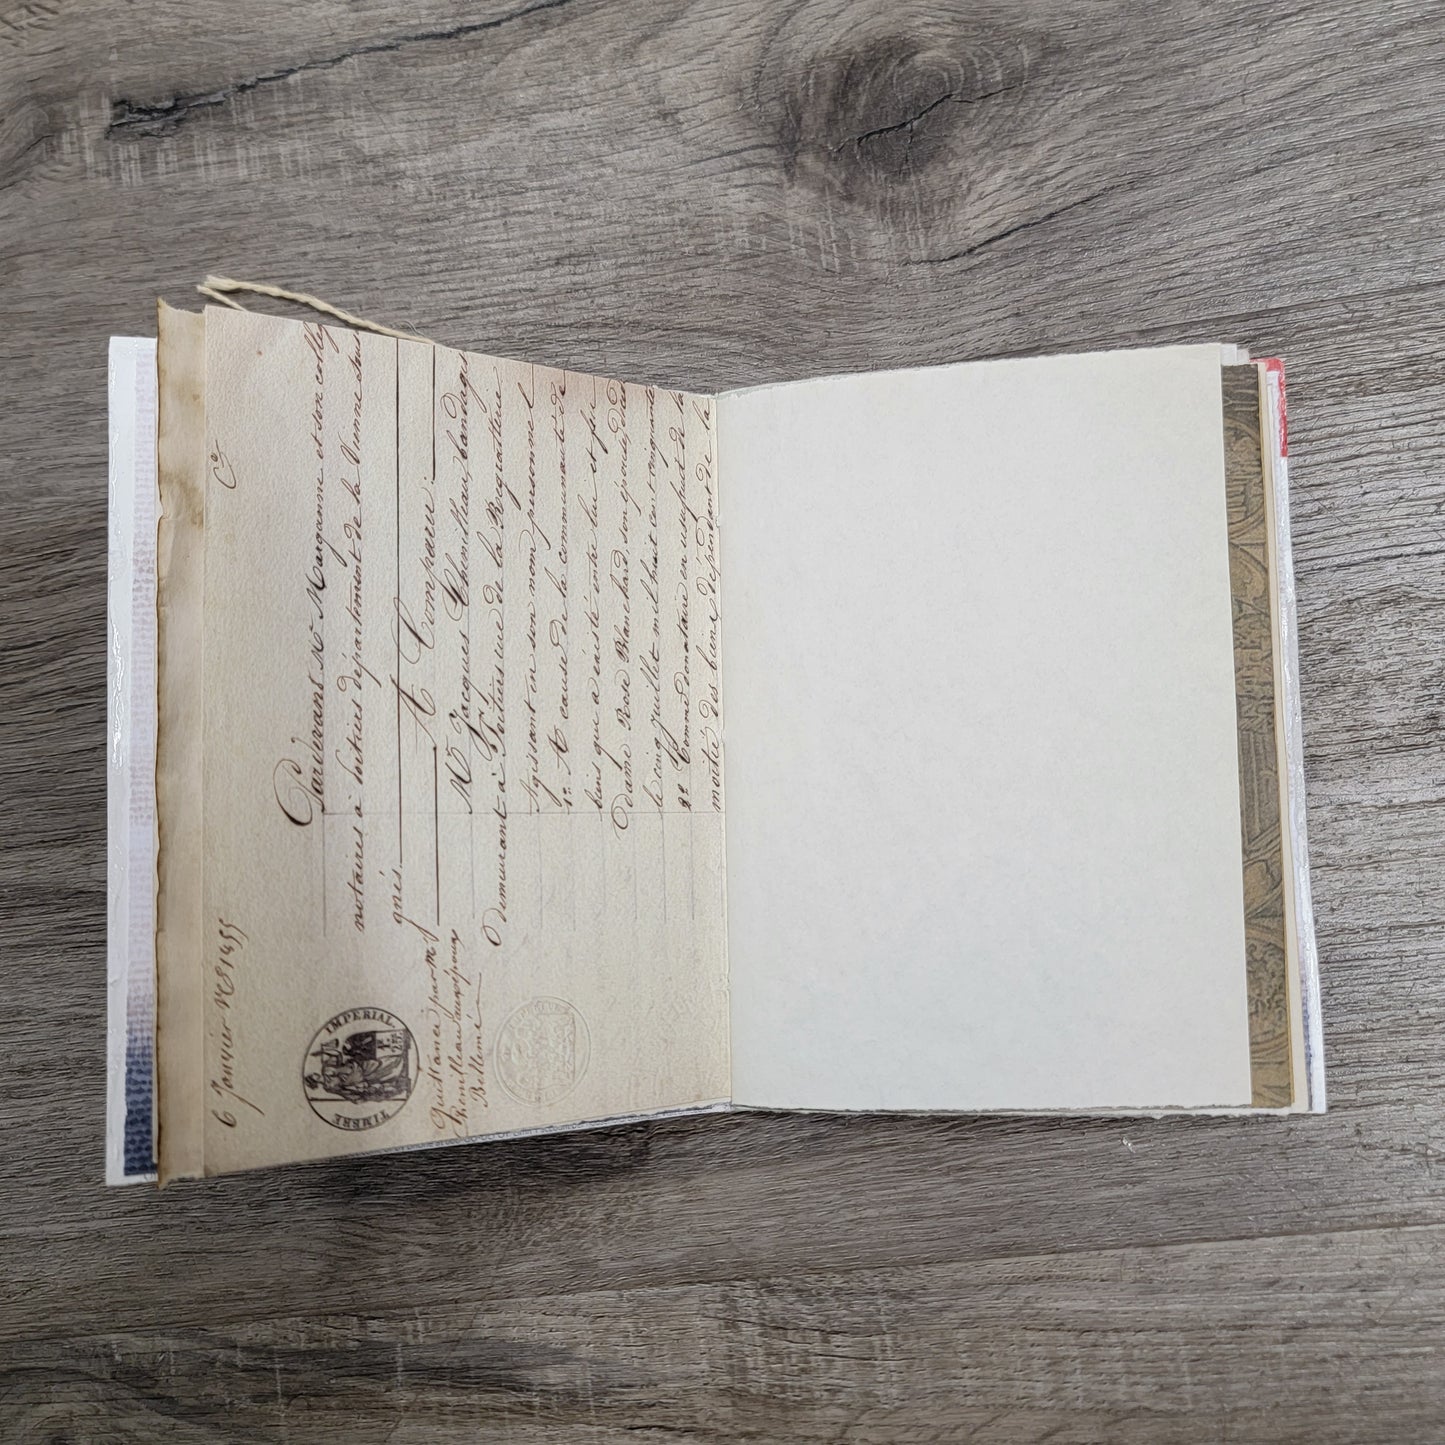 6 Janvier Nº 1455
Co
Pardevant Me Marganne et son collègue
notaires à
département de la Vienne
gnés.
A Comparu:
Mr Jacques Chenilleau,
Demeurant à
de la
Agissant en son nom personnel
1º. A cause de la communauté de
biens qui a existé entre lui et feu
Dame Rose Blanchard, son épouse,
le cinq juillet mil huit cent cinquante
2º Comme donataire en usufruit de la
moitié des biens dépendant de la
Quittance par Mr
Chenilleau
TIMBRE IMPERIAL